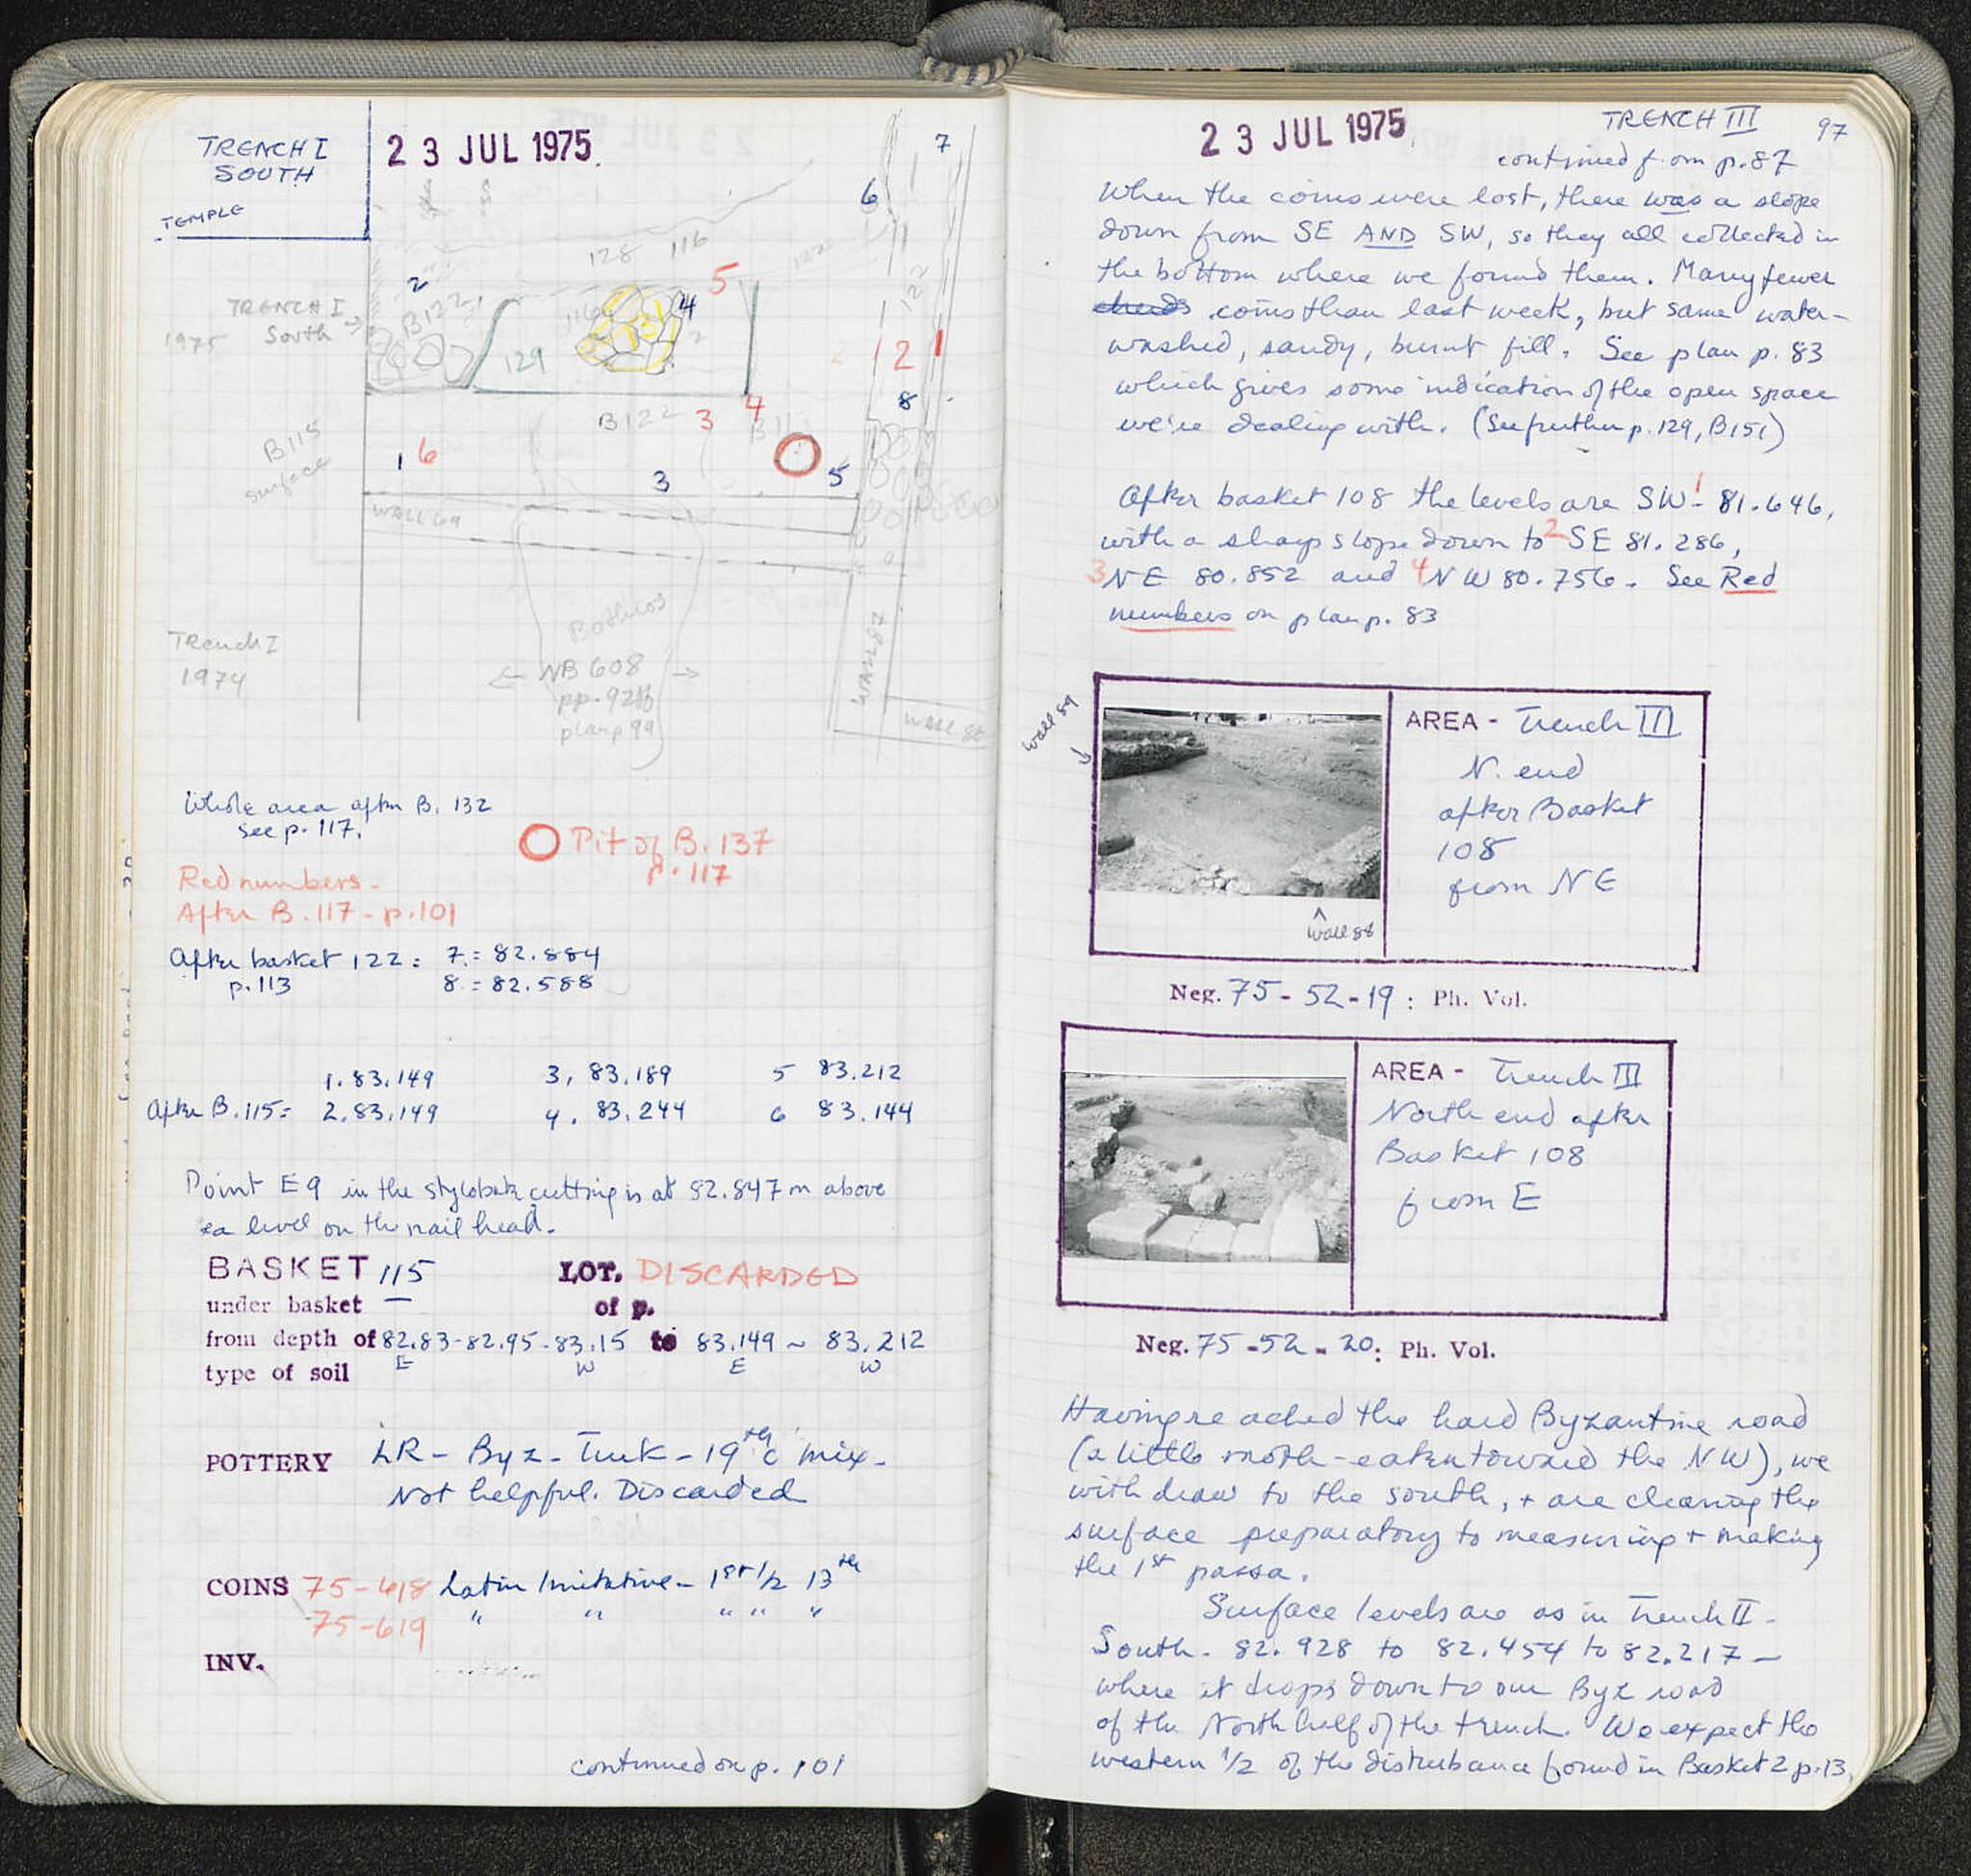 TRENCH I
SOUTH
TEMPLE
23 JUL 1975
7
6
128 116
122
5
2
4
TRENCH I
South →
1975
B122
116
131
129
122
2
2
1
8
B122
3
4
B115
surface
1
6
3
5
WALL 69
Bothros
← NB 608 →
pp. 92ff
plan p 99
TRench I
1974
WALL 87
WALL 88
Whole area after B. 132
see p. 117.
O Pit of B. 137
p. 117
Red numbers -
After B. 117 - p. 101
After basket 122 : 7. = 82.884
p. 113 8. = 82.588
1. 83.149 3, 83.189 5 83.212
After B. 115 = 2. 83.149 4. 83.244 6 83.144
Point E9 in the stylobate cutting is at 82.847 m above
sea level on the nail head.
BASKET 115 LOT. DISCARDED
under basket of p.
from depth of 82.83-82.95-83.15 to 83.149 ~ 83.212
E W E W
type of soil
POTTERY LR - Byz - Turk - 19th c mix -
Not helpful. Discarded
COINS 75-618 Latin Imitative - 1st 1/2 13th
75-619 " " " " "
INV.
continued on p. 101
23 JUL 1975
TRENCH III 97
continued from p. 87
When the coins were lost, there was a slope
down from SE AND SW, so they all collected in
the bottom where we found them. Many fewer
sherds coins than last week, but same water-
washed, sandy, burnt fill. See plan p. 83
which gives some indication of the open space
we're dealing with. (See further p. 129, B151)
After basket 108 the levels are SW 1 - 81.646,
with a sharp slope down to 2 SE 81.286,
3 NE 80.852 and 4 NW 80.756. See Red
numbers on plan p. 83
wall 89
AREA - Trench III
N. end
after Basket
108
from NE
wall 88
Neg. 75-52-19 : Ph. Vol.
AREA - Trench III
North end after
Basket 108
from E
Neg. 75-52-20 : Ph. Vol.
Having reached the hard Byzantine road
(a little moth-eaten toward the NW), we
withdraw to the south, + are cleaning the
surface preparatory to measuring + making
the 1st passa.
Surface levels are as in Trench II -
South - 82.928 to 82.454 to 82.217 -
where it drops down to our Byz road
of the North half of the trench. We expect the
western 1/2 of the disturbance found in Basket 2 p. 13.